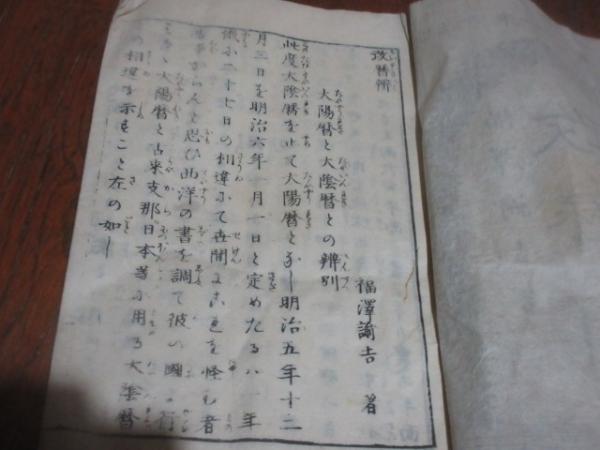 改暦辨
福澤諭吉 著
太陽暦と太陰暦との辨別
此度太陰暦を止て太陽暦となし明治五年十二
月三日を明治六年一月一日と定めたるハ一年
俄に二十七日の相違にて世間にこれを怪む者
も多からんと思ひ西洋の書を調て彼の國に行
はるゝ太陽暦と古来支那日本等に用る太陰暦
の相違を示すこと左の如し